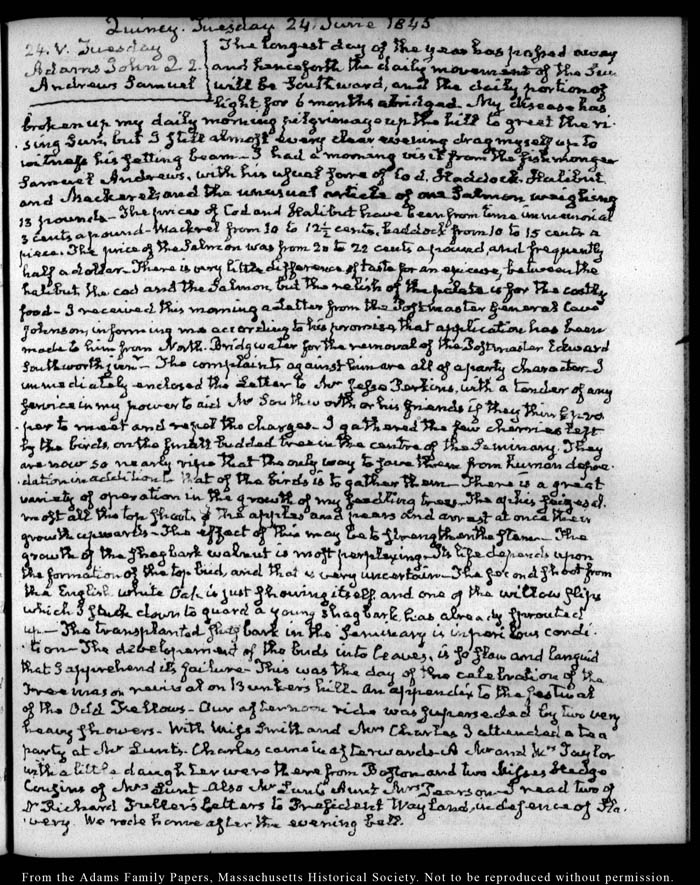 Quincy. Tuesday 24. June 1845
24. V. Tuesday
Adams John Q 2.
Andrews Samuel
The longest day of the year has passed away
and henceforth the daily movement of the Sun
will be Southward, and the daily portion of
light for 6 months abridged. My disease has
broken up my daily morning pilgrimage up the hill to greet the ri-
sing Sun, but I still almost every clear evening drag myself up to
witness his setting beam. I had a morning visit from the fishmonger
Samuel Andrews, with his usual fare of Cod, Haddock, Halibut
and Mackerel, and the unusual article of one Salmon weighing
13 pounds. The prices of Cod and Halibut have been from time immemorial
3 cents a pound. Mackrel from 10 to 12½ cents, haddock from 10 to 15 cents a
piece. The price of the Salmon was from 20 to 22 cents a pound, and frequently
half a dollar. There is very little difference of taste for an epicure, between the
halibut the cod and the Salmon, but the relish of the palate is for the costly
food. I received this morning a Letter from the Postmaster General Cave
Johnson, informing me according to his promise, that application has been
made to him from North Bridgwater for the removal of the Postmaster Edward
Southworth junr. The complaints against him are all of a party character. I
immediately enclosed the Letter to Mr Jesse Perkins, with a tender of any
service in my power to aid Mr Southworth or his friends if they think pro-
per to meet and repel the charges. I gathered the few cherries left
by the birds, on the small budded tree in the centre of the Seminary. They
are now so nearly ripe that the only way to save them from human depre-
dation in addition to that of the birds is to gather them. There is a great
variety of operation in the growth of my seedling trees. The aphis seizes al-
most all the top shoots of the apples and pears and arrest at once their
growth upwards. The effect of this may be to strengthen the stem. The
growth of the shagbark walnut is most perplexing. Its life depends upon
the formation of the top bud, and that is very uncertain. The second shoot from
the English white Oak is just showing itself and one of the willow slips
which I stuck down to guard a young shagbark has already sprouted
up. The transplanted shagbark in the Seminary is in perilous condi-
tion. The developement of the buds into leaves, is so slow and languid
that I apprehend its failure. This was the day of the celebration of the
Freemason revival on Bunkers hill. An appendix to the festival
of the Odd Fellows. Our afternoon ride was superseded by two very
heavy showers. With Miss Smith and Mrs Charles I attended a tea
party at Mr Lunt's. Charles came in afterwards. A Mr and Mrs Taylor
with a little daughter were there from Boston and two Misses Hedge
Cousins of Mrs Lunt. Also Mr Lunt's Aunt Mrs Pearson. I read two of
Dr Richard Fuller's Letters to President Wayland, in defence of Sla-
very. We rode home after the evening bell.
From the Adams Family Papers, Massachusetts Historical Society. Not to be reproduced without permission.